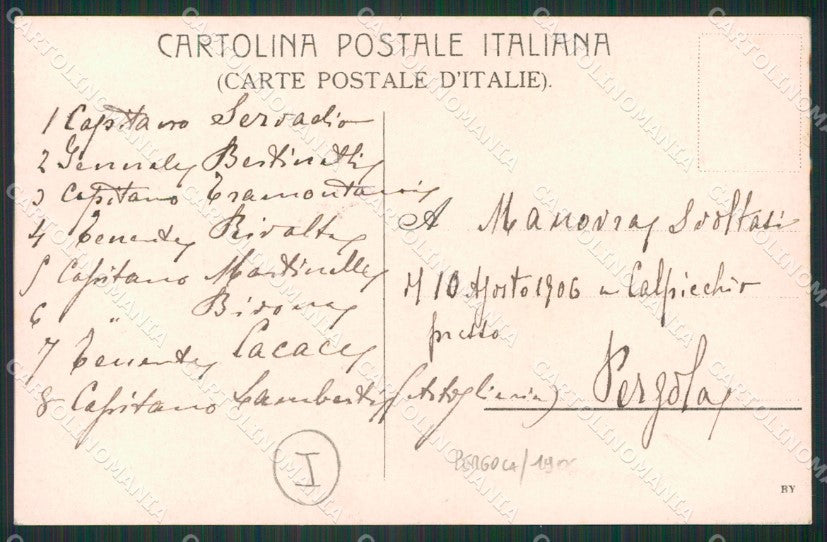 CARTOLINA POSTALE ITALIANA
(CARTE POSTALE D'ITALIE).
1 Capitano Servadio
2 Generale Bertinatti
3 Capitano Tramontani
4 Tenente Rivalta
5 Capitano Martinelli
6 " Bidona
7 Tenente Cacace
8 Capitano Lamberti (Artiglieria)
A Manovra Svoltasi
il 10 Agosto 1906 a Calpicchio
presso
Pergola
I
PERGOLA/1906
BY
CARTOLINOMANIA